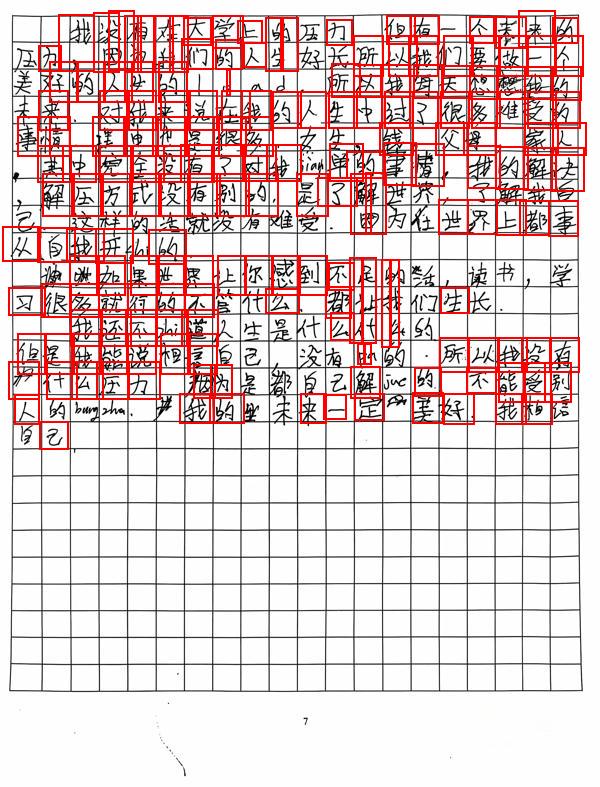 我没有在大学上的压力 但有一个未来的
压力,因为我们的人生好长所以我们要做一个
美好的人生的 所以我每天想想我的
未来.对我来说在我的人生中过了很多难受的
事情 理由也是很多 女生,钱 父母 家人
,其中完全没有了对我jian单的事情,我的解决
,解压方式没有别的,是了解世界,了解我自
己.这样的话就没有难受.因为在世界上都事
从自我开shi的
如果世界让你感到不足的话,读书,学
习很多就行的不管什么.都让我们生长.
我还不zhi道人生是什么什么的
但是我能说相信自己,没有 的.所以我没有
什么压力 因为是都自己解jue的.不能受别
人的bangzhu. 我的 未来一定 美好.我相信
自己.
7